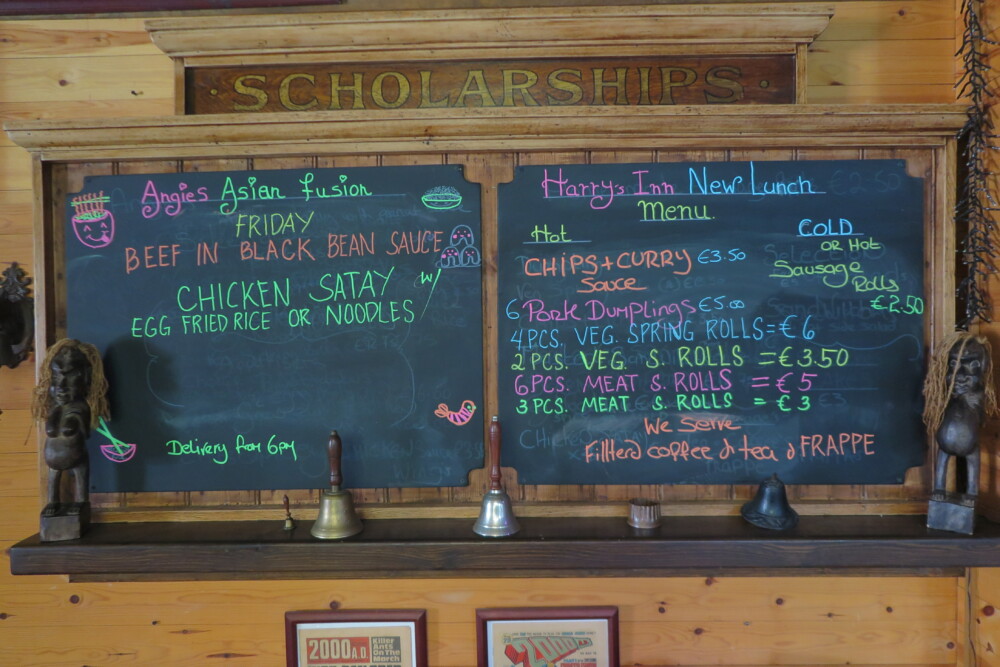 ·SCHOLARSHIPS·
Angies Asian fusion
FRIDAY
BEEF IN BLACK BEAN SAUCE
CHICKEN SATAY w/
EGG FRIED RICE OR NOODLES
Delivery from 6pm
Harry,s Inn New Lunch
Menu.
Hot
CHIPS + CURRY €3.50
Sauce
6 Pork Dumplings €5.00
4 PCS. VEG. SPRING ROLLS = €6
2 PCS. VEG. S. ROLLS = €3.50
6 PCS. MEAT S. ROLLS = €5
3 PCS. MEAT S. ROLLS = €3
COLD
OR Hot
Sausage
Rolls
€2.50
We Serve
Fillterd coffee & tea & FRAPPE
2000 A.D.
Killer
Ants On
The March
2000 AD